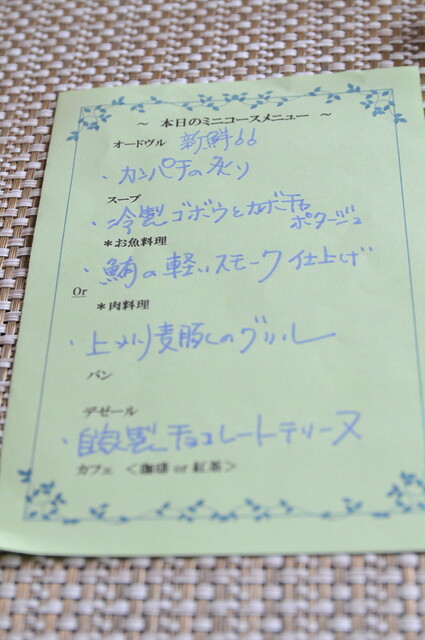 ～ 本日のミニコースメニュー ～
オードヴル 新鮮
・カンパチの炙り
スープ
・冷製ゴボウと
ポタージュ
＊お魚料理
・鮪の軽いスモーク仕上げ
Or
＊肉料理
・上州麦豚のグリル
パン
デゼール
・自家製チョコレートテリーヌ
カフェ ＜珈琲 or 紅茶＞